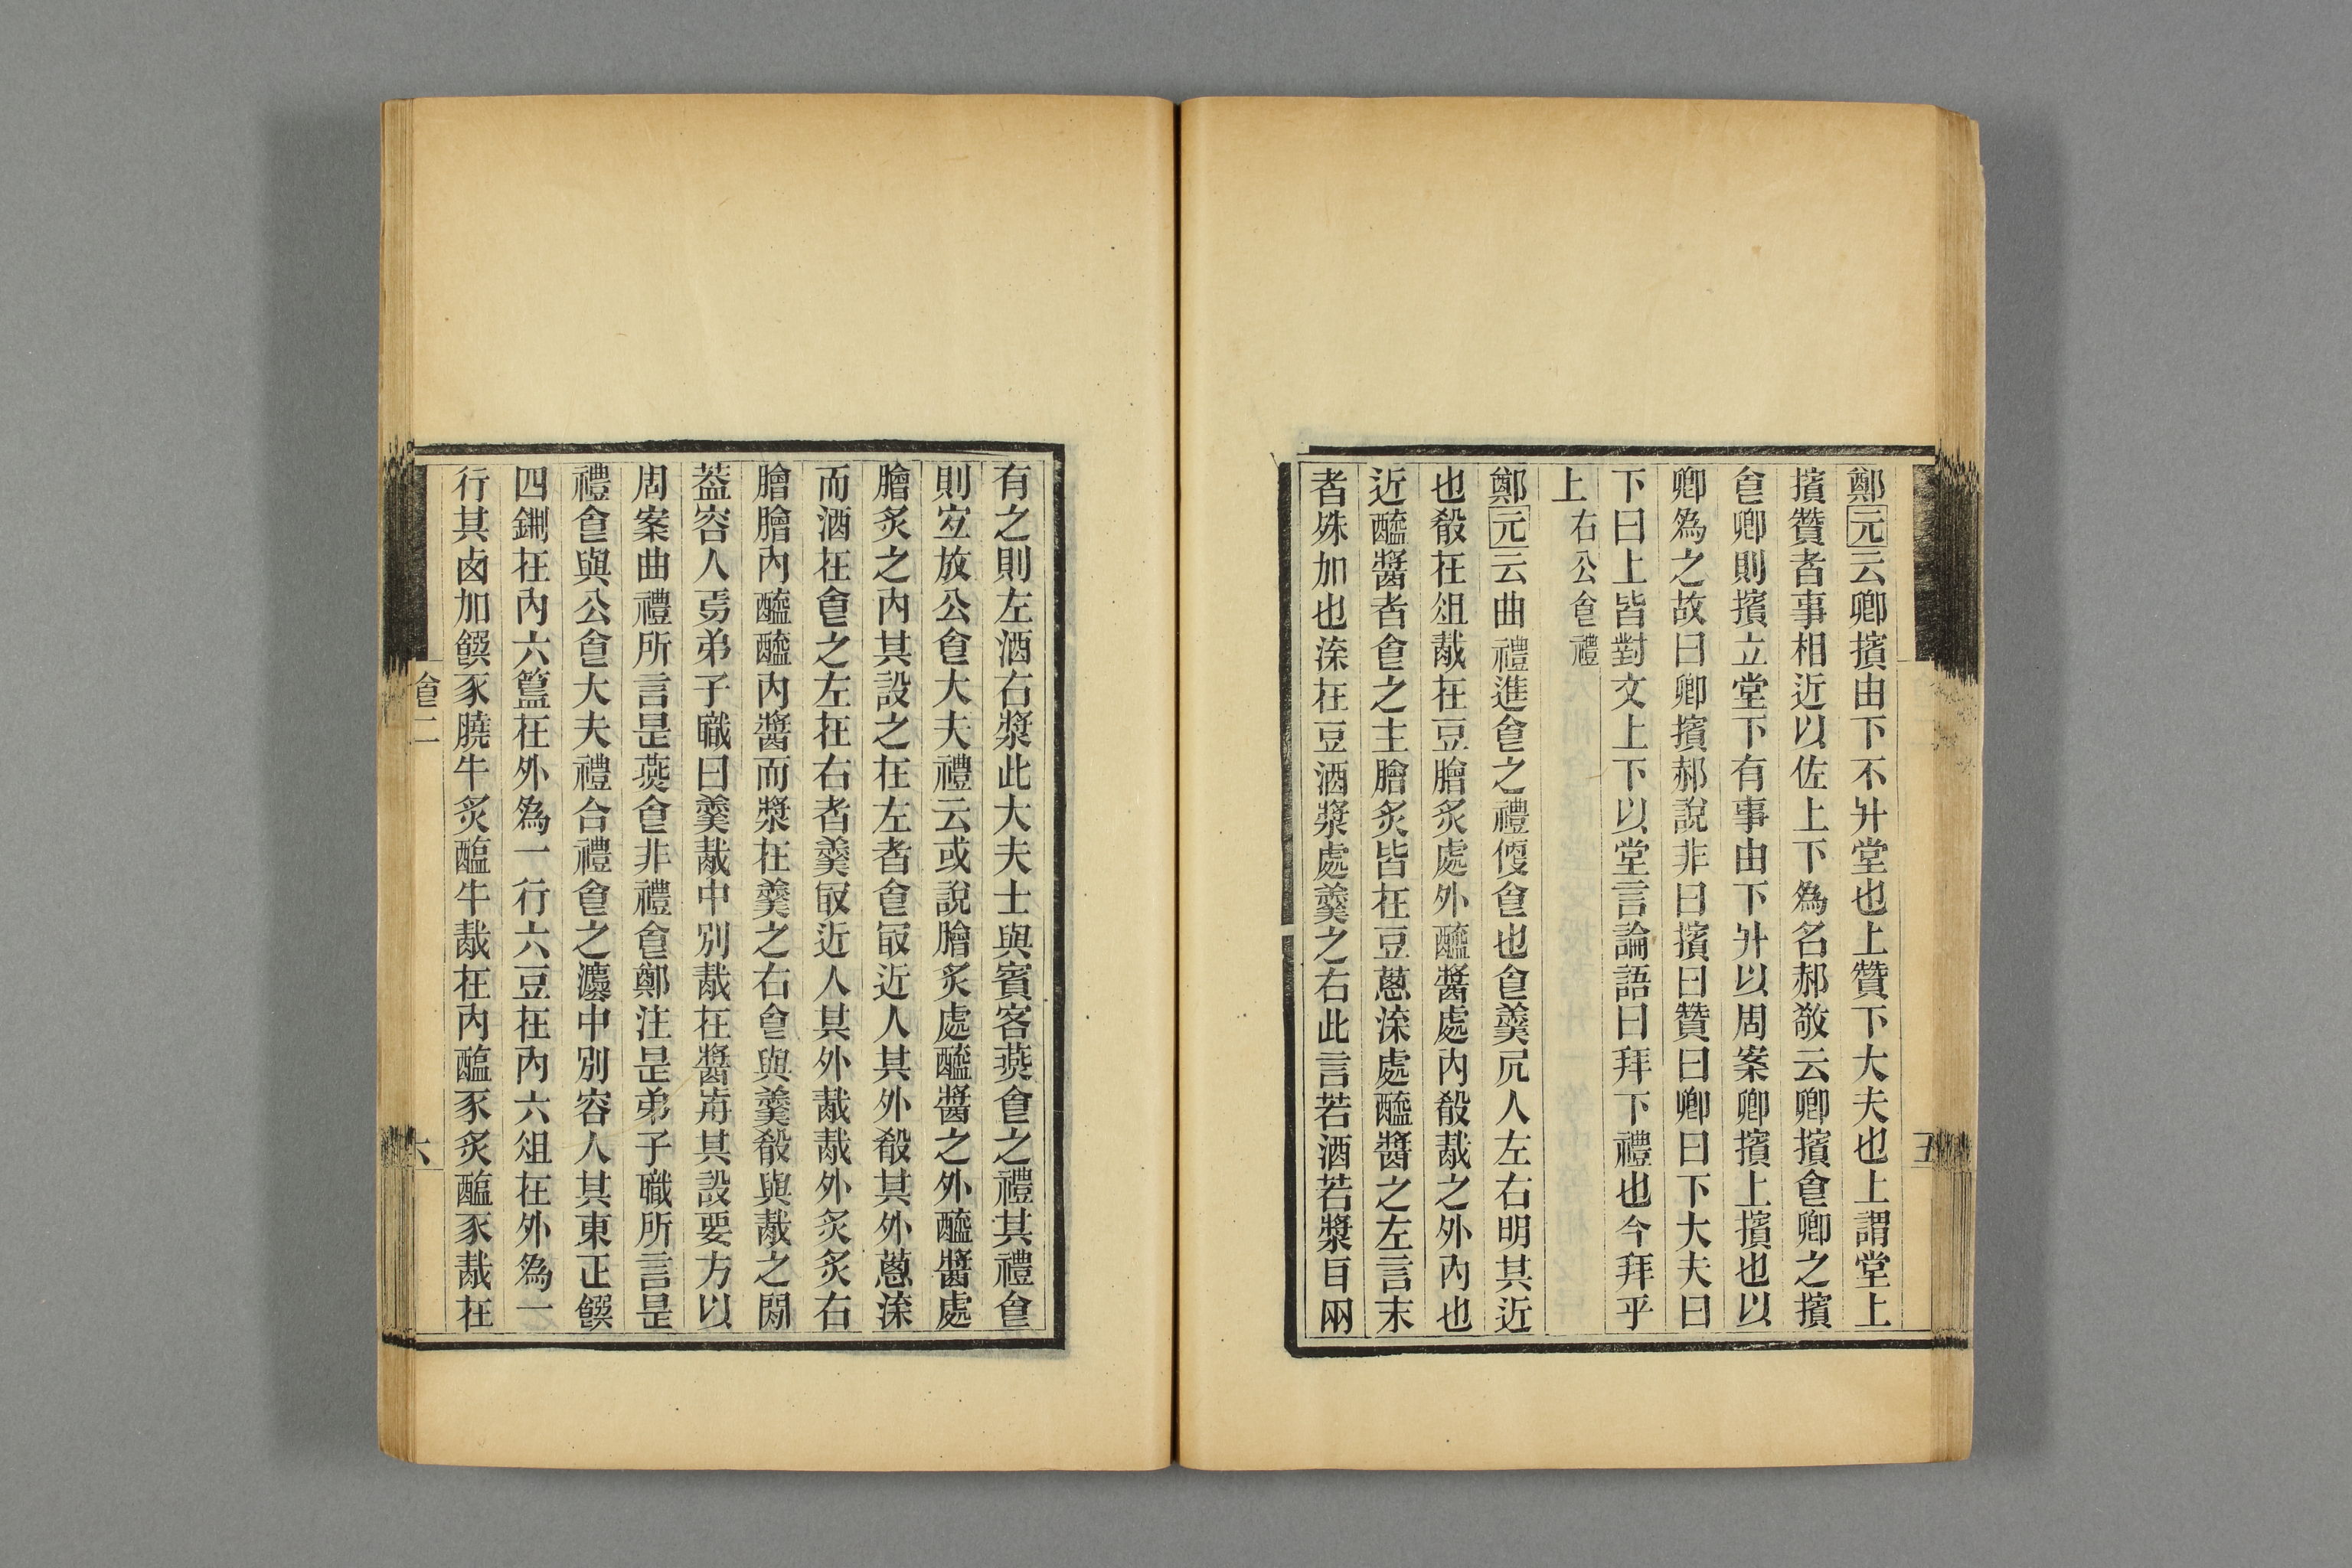 鄭元云卿擯由下不升堂也上贊下大夫也上謂堂上
擯贊者事相近以佐上下為名郝敬云卿擯食卿之擯
食卿則擯立堂下有事由下升以周案卿擯上擯也以
卿為之故曰卿擯郝說非曰擯曰贊曰卿曰下大夫曰
下曰上皆對文上下以堂言論語曰拜下禮也今拜乎
上
右公食禮
鄭元云曲禮進食之禮優食也食羹凥人左右明其近
也殽在俎胾在豆膾炙處外醯醬處內殽胾之外內也
近醯醬者食之主膾炙皆在豆蔥渿處醯醬之左言末
者殊加也渿在豆酒漿處羹之右此言若酒若漿百网
有之則左酒右漿此大夫士與賓客燕食之禮其禮食
則宐放公食大夫禮云或說膾炙處醯醬之外醯醬處
膾炙之內其設之在左者食冣近人其外殽其外蔥渿
而酒在食之左在右者羹冣近人其外胾胾外炙炙右
膾膾內醯醯內醬而漿在羹之右食與羹殽與胾之閒
葢容人焉弟子職曰羹胾中別胾在醬歬其設要方以
周案曲禮所言是燕食非禮食鄭注是弟子職所言是
禮食與公食大夫禮合禮食之灋中別容人其東正饌
四鉶在內六簋在外為一行六豆在內六俎在外為一
行其鹵加饌豕膮牛炙醢牛胾在內醢豕炙醢豕胾在
食二
六
五